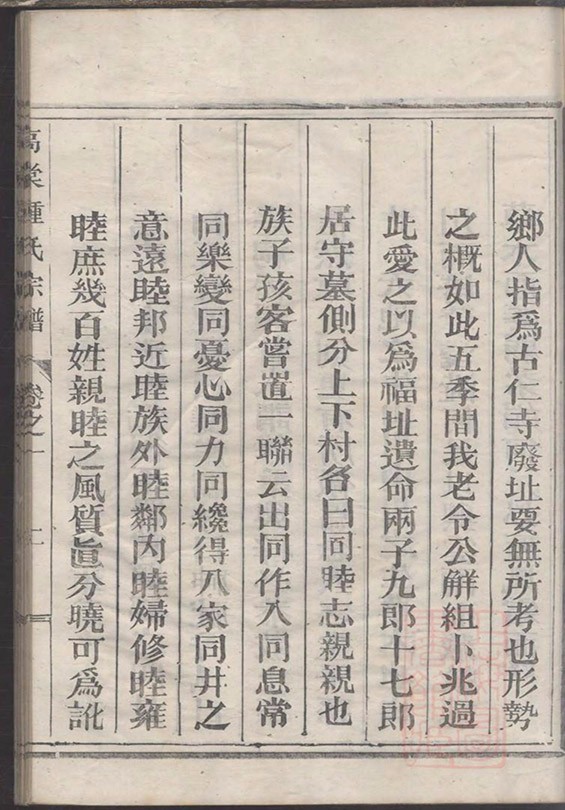 鄉人指爲古仁寺廢址要無所考也形勢
之概如此五季間我老令公解組卜兆過
此愛之以爲福址遺命兩子九郎十七郎
居守墓側分上下村各曰同睦志親親也
族子孩客嘗置一聯云出同作入同息常
同樂變同憂心同力同纔得八家同井之
意遠睦邦近睦族外睦鄰內睦婦修睦雍
睦庶幾百姓親睦之風質眞分曉可爲訛
氏宗譜
卷之一